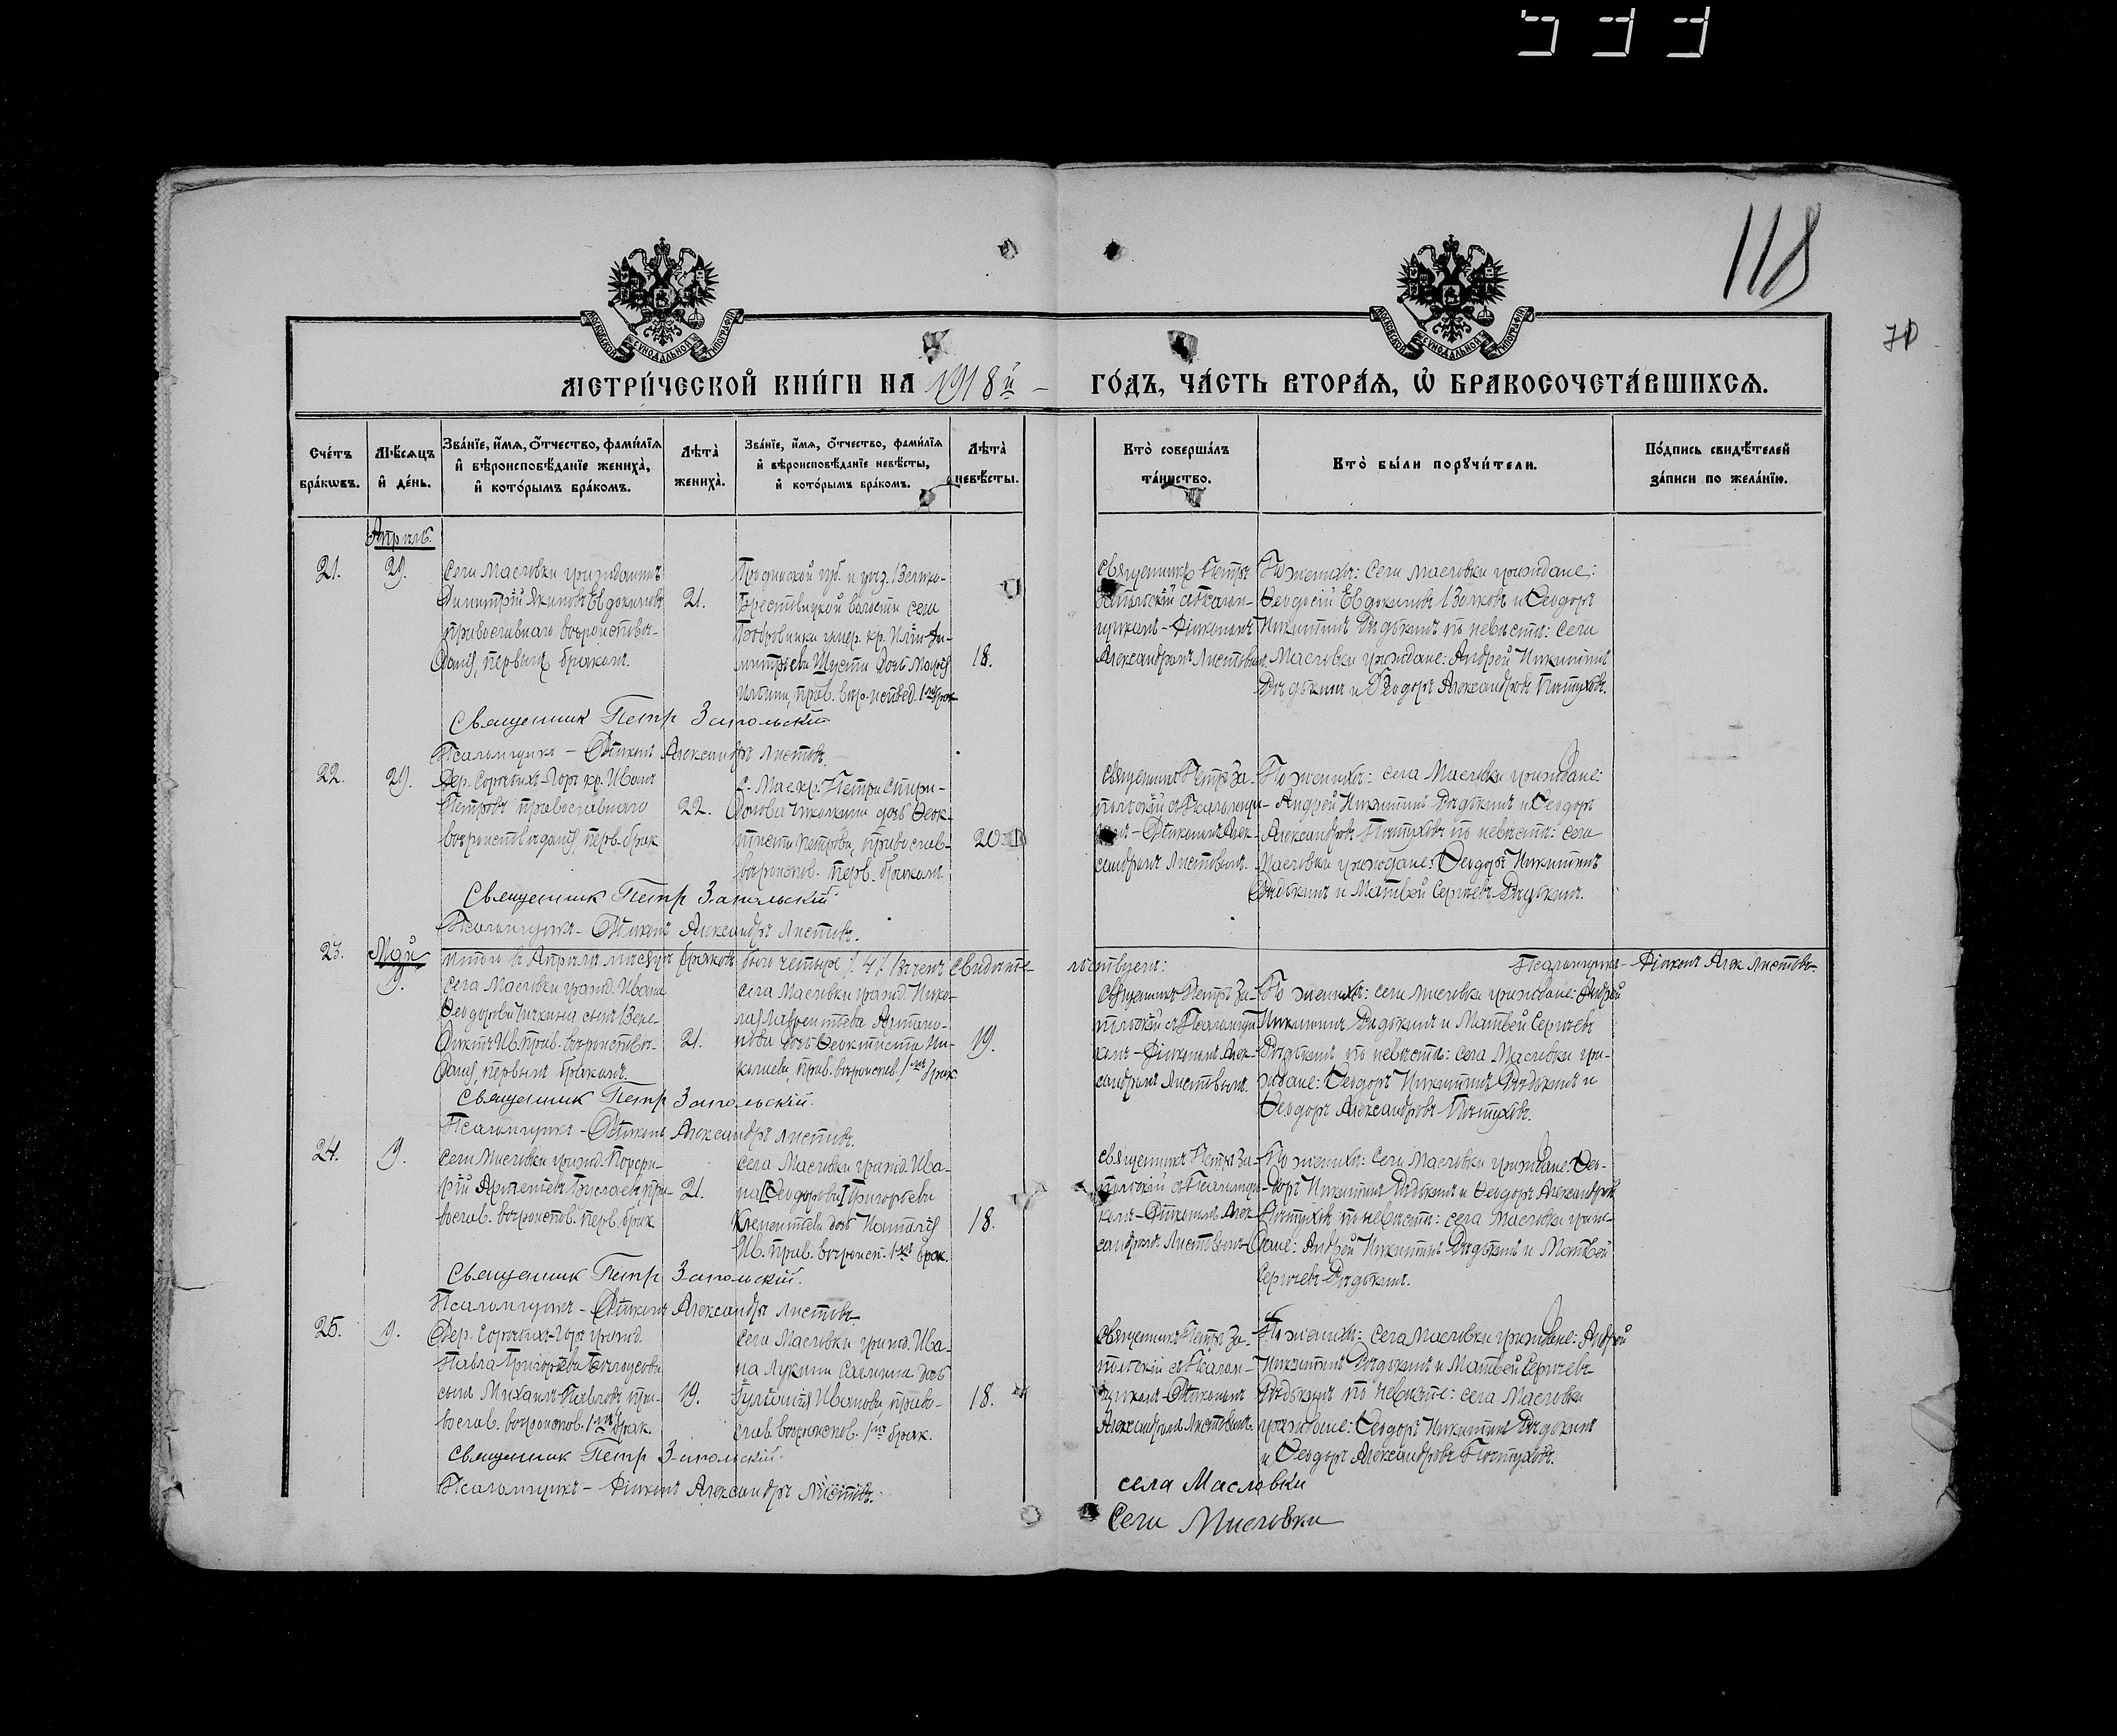 533
118
70
МОСКОВСКОЙ СѴНОДАЛЬНОЙ ТИПОГРАФІИ
МОСКОВСКОЙ СѴНОДАЛЬНОЙ ТИПОГРАФІИ
МЕТРИ́ЧЕСКОЙ КНИ́ГИ НА 1918й
ГО́ДЪ, ЧА́СТЬ ВТОРА́Я, Ѡ БРАКОСОЧЕТА́ВШИХСЯ.
Сче́тъ бра́кѡвъ.
Мѣ́сяцъ и де́нь.
Зва́нїе, и́мя, ѻ́тчество, фами́лїя и вѣроисповѣ́данїе жениха̀, и кото́рымъ бра́комъ.
Лѣта̀ жениха̀.
Зва́нїе, и́мя, ѻ́тчество, фами́лїя и вѣроисповѣ́данїе невѣ́сты, и кото́рымъ бра́комъ.
Лѣта̀ невѣ́сты.
Кто̀ соверша́лъ та́инство.
Кто̀ бы́ли порꙋчи́тели.
По́дпись свидѣ́телей за́писи по жела́нїю.
Апрѣль.
21.
29.
Села Масловки гражданинъ
Димитрій Якимовъ Евдокимовъ
православнаго вѣроисповѣ-
данія, первымъ бракомъ.
21.
Гродненской губ. и уѣз. Велико-
Берестовицкой волости села
Бобровники умер. кр. Иліи Ди-
митріева Шуста дочь Марія
Ильина, прав. вѣр-исповед. 1мъ брак.
18.
Священникъ Петръ
Запольскій съ Псалом-
щикомъ-Діакономъ
Александромъ Листовымъ.
По женихѣ: села Масловки граждане:
Ѳеодосій Евдокимовъ Волковъ и Ѳеодоръ
Никитинъ Рѣдькинъ по невѣстѣ: села
Масловки граждане: Андрей Никитинъ
Рѣдькинъ и Ѳеодоръ Александровъ Пѣтуховъ.
Священник Петр Запольскій
Псаломщикъ - Діаконъ Александръ Листовъ.
22.
29.
Дер. Сорочьихъ-Горъ кр. Иванъ
Петровъ православнаго
вѣроисповѣданія, перв. брак
22.
с. Масл. кр. Петра Спири-
донова Чикалкина дочь Ѳеок-
тиста Петрова, православ-
вѣроиспов. перв. бракомъ.
20
Священникъ Петръ За-
польскій съ Псаломщи-
комъ-Діакономъ Алек-
сандромъ Листовымъ.
По женихѣ: села Масловки граждане:
Андрей Никитинъ Рѣдькинъ и Ѳеодоръ
Александровъ Пѣтуховъ по невѣстѣ: села
Масловки граждане: Ѳеодоръ Никитинъ
Рѣдькинъ и Матвей Сергѣевъ Рѣдькинъ.
Священник Петр Запольскій
Псаломщикъ - Діаконъ Александръ Листовъ.
Итого въ Апрѣлѣ мѣсяцѣ браковъ было четыре /4/ Въ чемъ свидѣте-
льствуемъ:
Псаломщикъ - Діаконъ Алек. Листовъ
23.
Май
9.
Села Масловки гражд. Ивана
Ѳеодорова Чичкина сынъ Вене-
диктъ Ив. прав. вѣроисповѣ-
данія, первымъ бракомъ.
21.
села Масловки гражд. Нико-
лая Лаврентьева Артамо-
нова дочь Ѳеоктиста Ни-
колаева, прав. вѣроиспов. 1мъ брак
19.
Священникъ Петръ За-
польскій съ Псаломщи-
комъ-Діакономъ Алек-
сандромъ Листовымъ.
По женихѣ: села Масловки граждане: Андрей
Никитинъ Рѣдькинъ и Матвей Сергѣевъ
Рѣдькинъ по невѣстѣ: села Масловки гра-
ждане: Ѳеодоръ Никитинъ Рѣдькинъ и
Ѳеодоръ Александровъ Пѣтуховъ.
Священник Петр Запольскій.
Псаломщикъ - Діаконъ Александръ Листовъ.
24.
9.
Села Масловки гражд. Порфи-
рій Артемьевъ Буслаевъ пра-
вослав. вѣроиспов. перв. брак
21.
села Масловки гражд. Ива-
на [Ѳеодорова] Григорьева
Клементьева дочь Наталія
Ив. прав. вѣроисп. 1мъ брак.
18.
Священникъ Петръ За-
польскій съ Псаломщи-
комъ-Діакономъ Алек-
сандромъ Листовымъ
По женихѣ: села Масловки граждане: Ѳео-
доръ Никитинъ Рѣдькинъ и Ѳеодоръ Александровъ
Пѣтуховъ по невѣстѣ: села Масловки граж-
дане: Андрей Никитинъ Рѣдькинъ и Матвей
Сергѣевъ Рѣдькинъ.
Священник Петр Запольскій.
Псаломщикъ - Діаконъ Александръ Листовъ
25.
9.
Дер. Сорочьихъ-Горъ гражд.
Павла Григорьева Бѣлоусова
сынъ Михаилъ Павловъ пра-
вослав. вѣроиспов. 1мъ брак.
19.
Села Масловки гражд. Ива-
на Лукина Салмина дочь
Іуліанія Иванова право-
слав. вѣроиспов. 1мъ брак.
18.
Священникъ Петръ За-
польскій съ Псалом-
щикомъ-Діакономъ
Александромъ Листовымъ.
По женихѣ: села Масловки граждане: Андрей
Никитинъ Рѣдькинъ и Матвей Сергѣевъ
Рѣдькинъ по невѣстѣ: села Масловки
граждане: Ѳеодоръ Никитинъ Рѣдькинъ
и Ѳеодоръ Александровъ Пѣтуховъ.
Священник Петр Запольскій.
Псаломщикъ - Діаконъ Александръ Листовъ.
села Масловки
Села Масловки